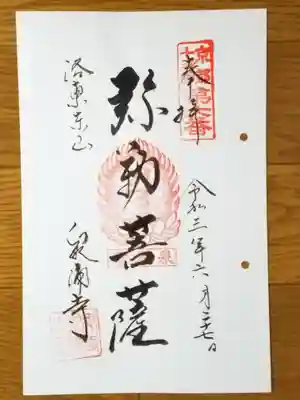 奉拝
令和三年六月二十七日
弥勒菩薩
洛東東山
泉涌寺